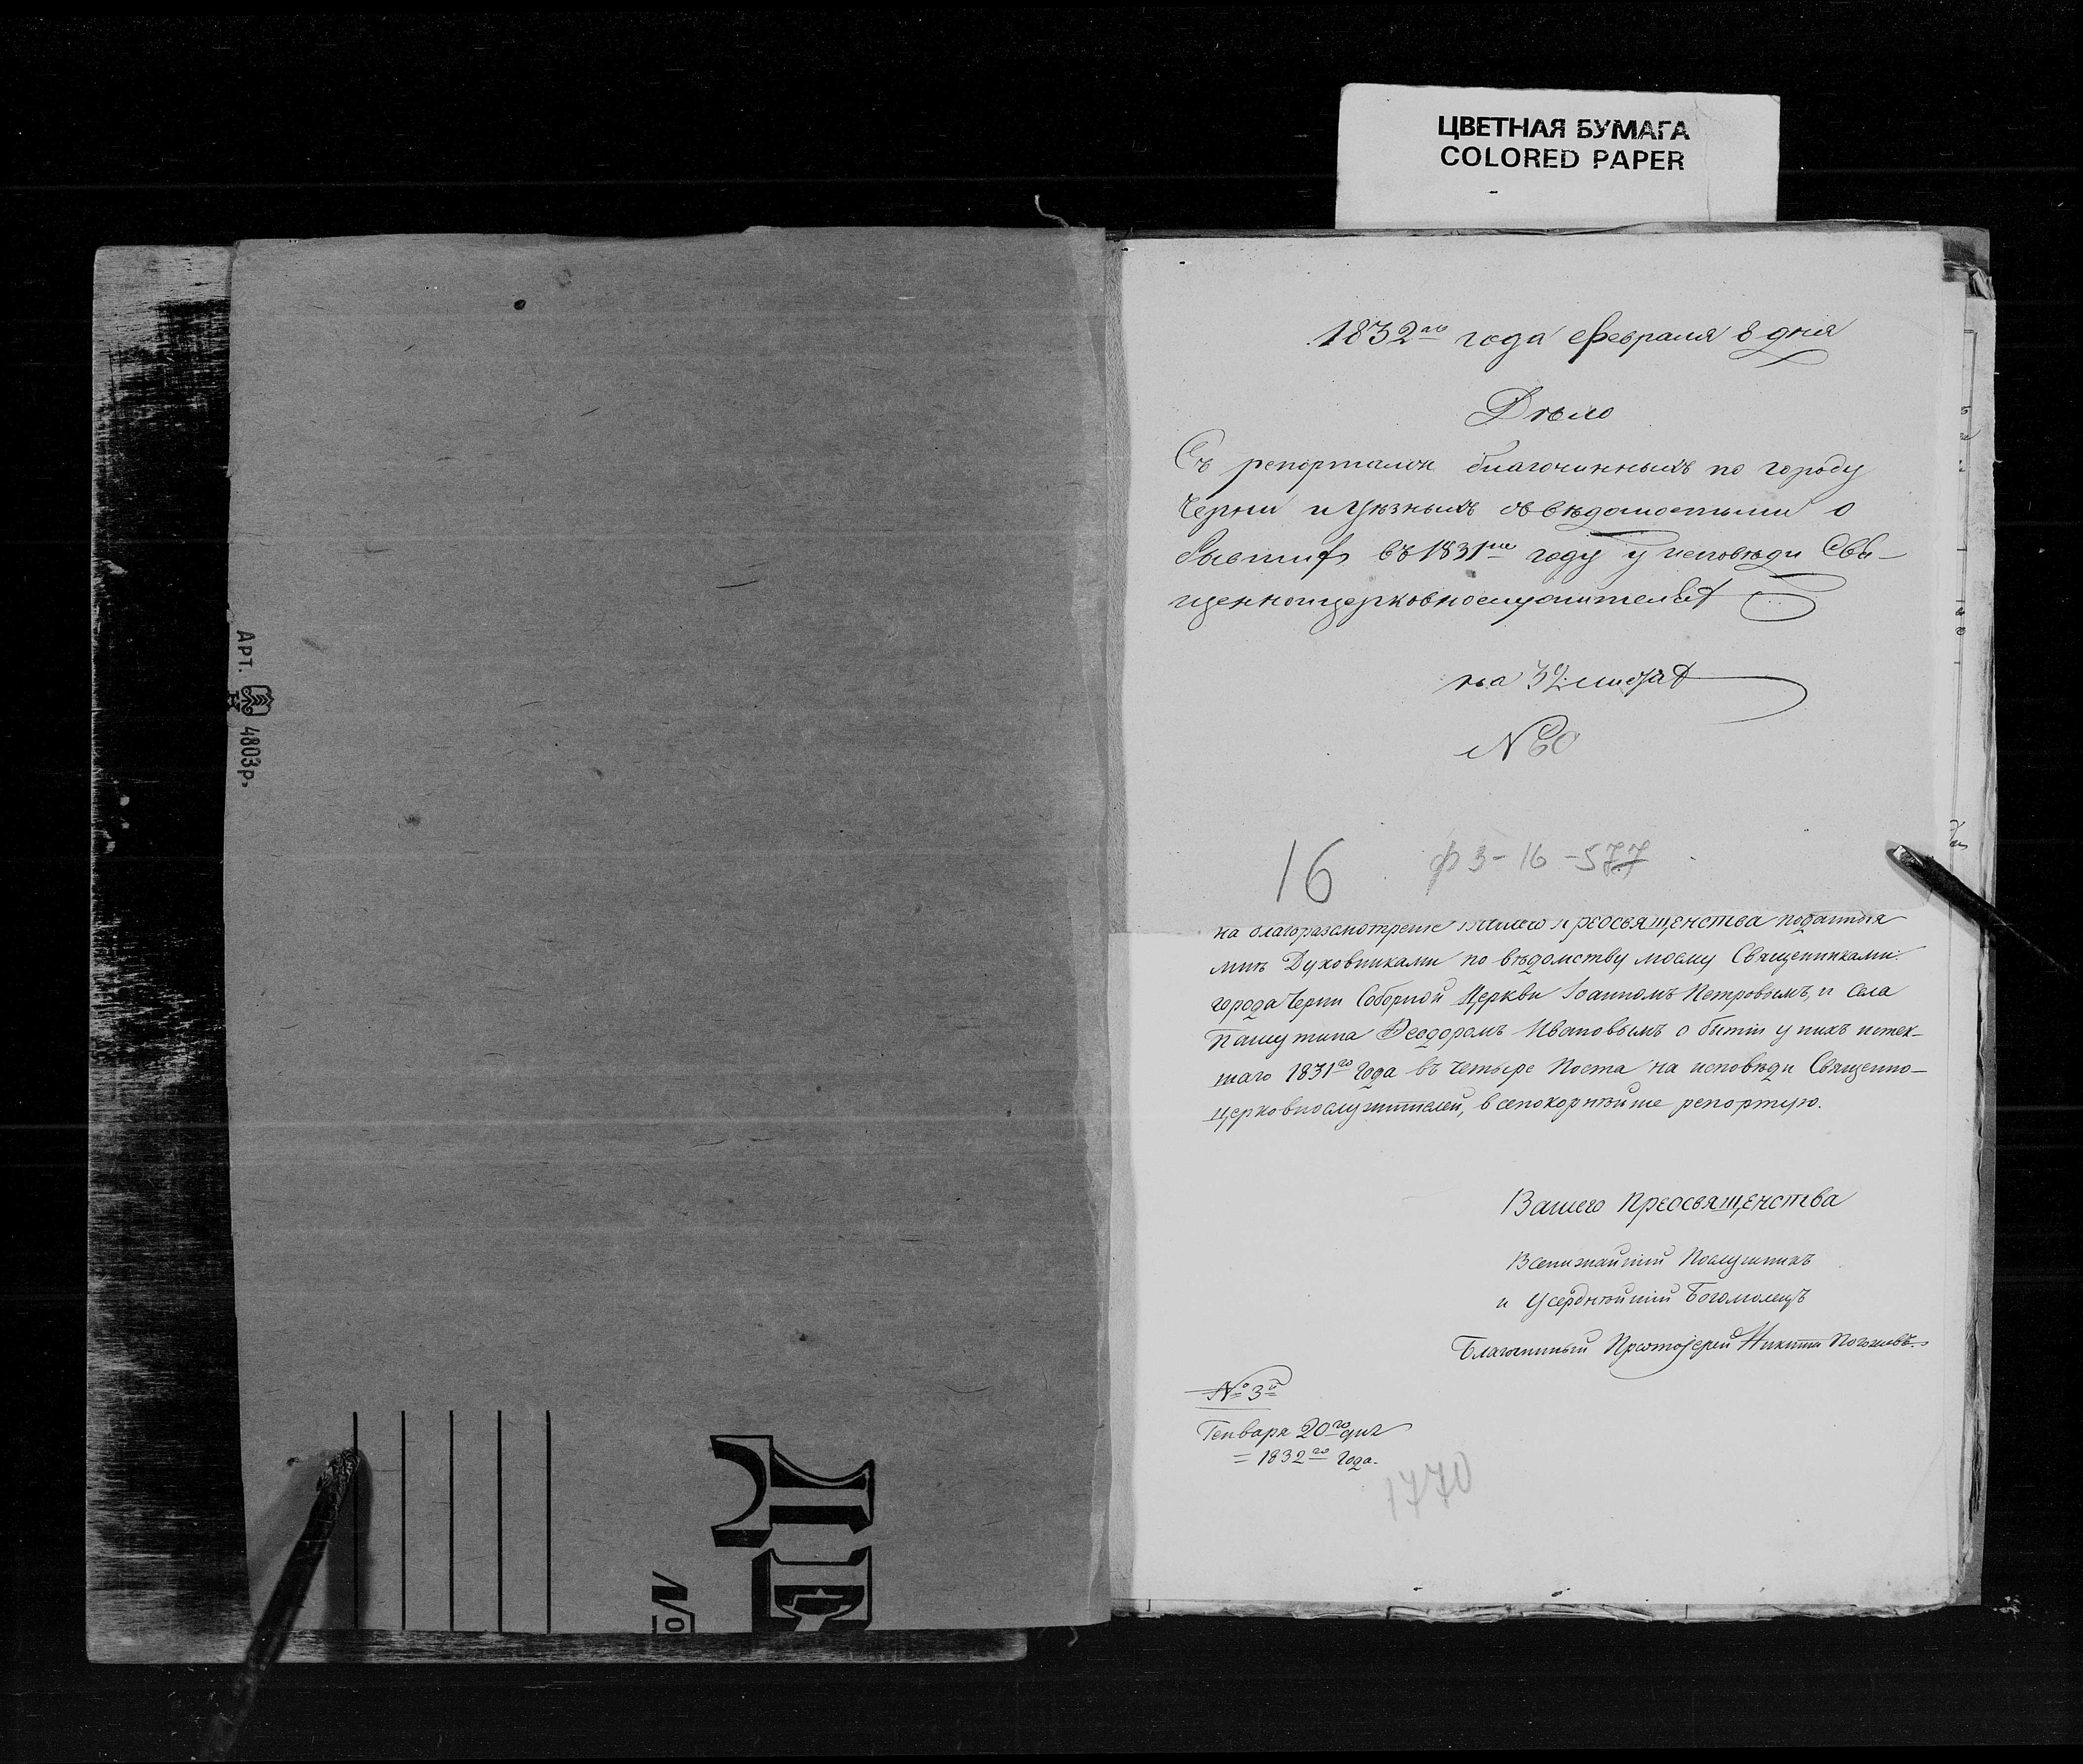 ЦВЕТНАЯ БУМАГА
COLORED PAPER
1832го года февраля 8 дня
Дѣло
Съ репортами благочинныхъ по городу
Черни и уѣзныхъ съ вѣдомостьми о
бывшихъ въ 1831мъ году у исповѣди Свя-
щенноицерковнослужителях
на 32 листах
N 60
16
ф 3-16-577
на благоразсмотрение Вашего Преосвященства поданныя
мнѣ Духовниками по вѣдомству моему Священниками:
города Черни Соборной Церкви Iоанномъ Петровымъ, и Села
Ѳеодоромъ Ивановымъ о бытiи у нихъ истек-
шаго 1831го Года въ четыре Поста на исповѣди Священно-
церковнослужителей, всепокорнѣйше репортую.
Вашего Преосвященства
Всенижайшiй Послушникъ
и Усерднѣйшiй Богомолецъ
Благочинный Протоiерей Никита
№ 3й
Генваря 20го дня
= 1832го Года.
1770
АРТ. 4803р
№